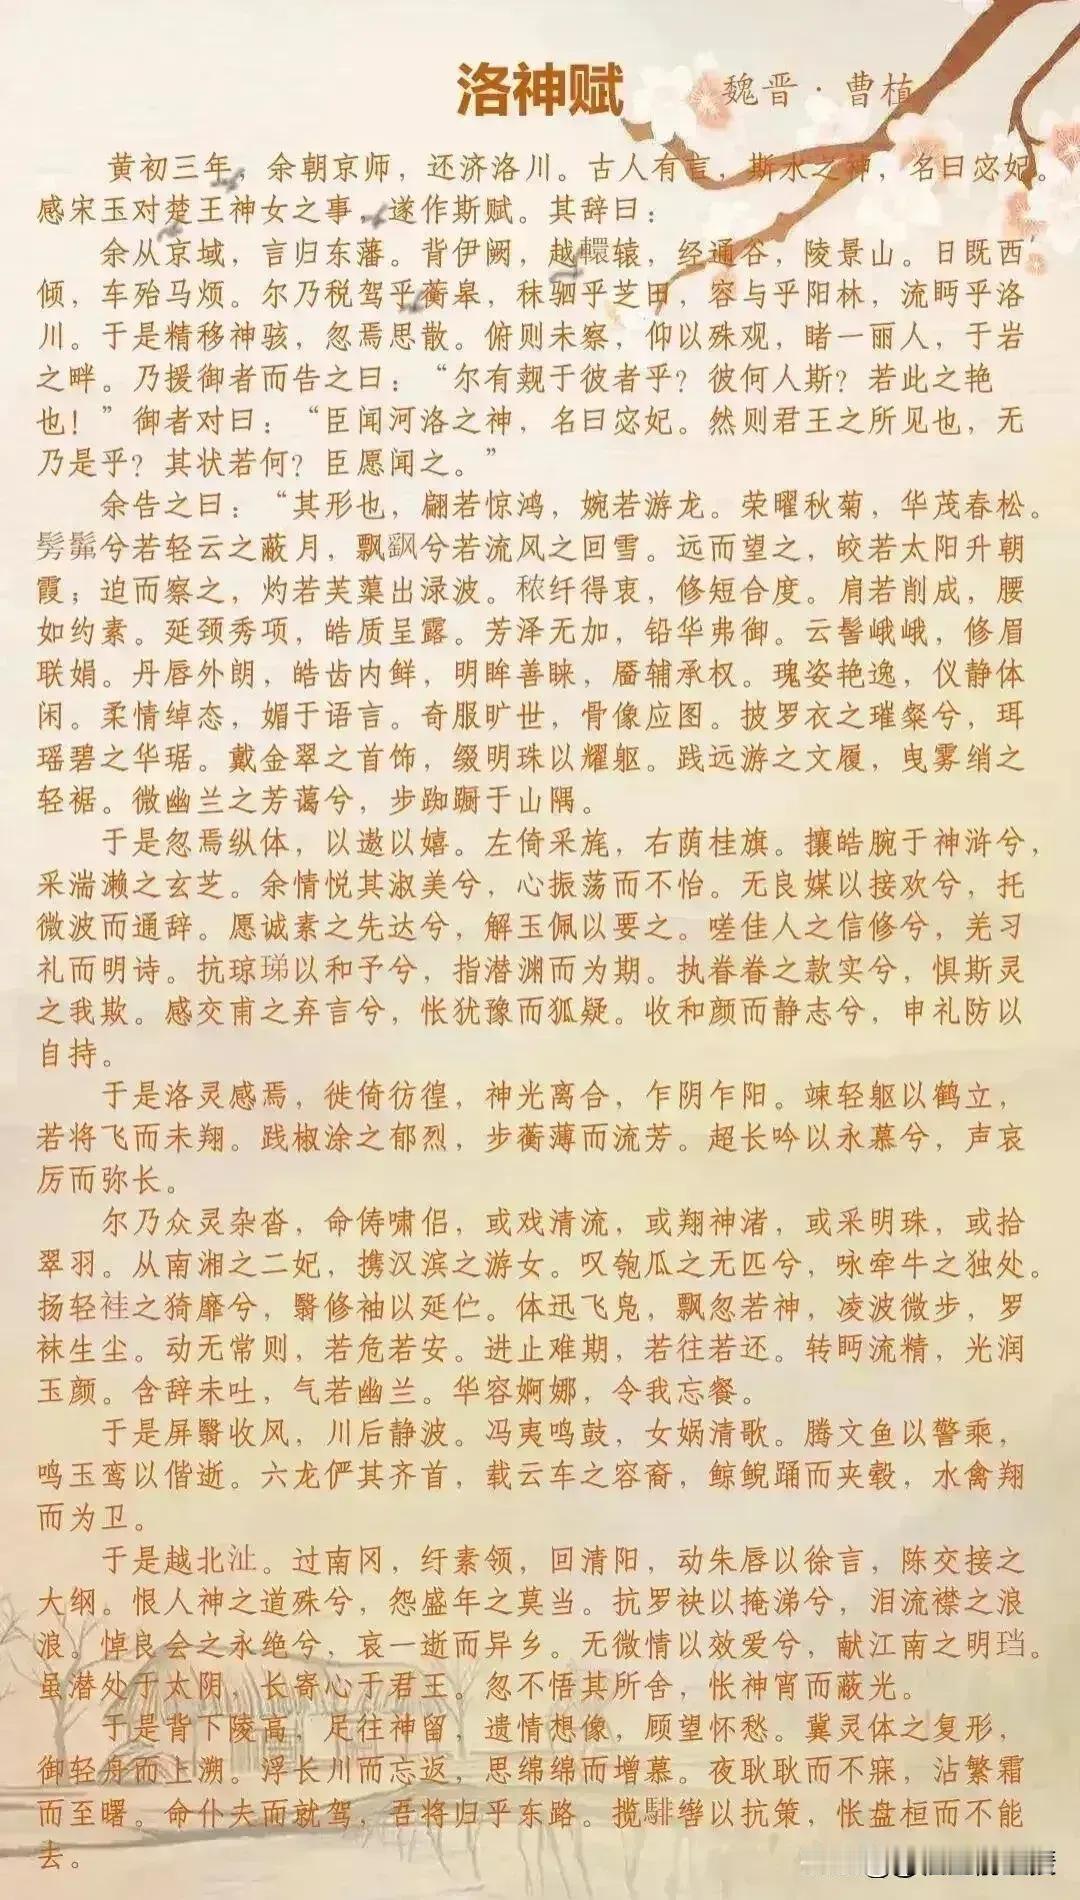 洛神赋 魏晋·曹植
黄初三年，余朝京师，还济洛川。古人有言，斯水之神，名曰宓妃。
感宋玉对楚王神女之事，遂作斯赋。其辞曰：
余从京域，言归东藩。背伊阙，越轘辕，经通谷，陵景山。日既西
倾，车殆马烦。尔乃税驾乎蘅皋，秣驷乎芝田，容与乎阳林，流眄乎洛
川。于是精移神骇，忽焉思散。俯则未察，仰以殊观，睹一丽人，于岩
之畔。乃援御者而告之曰：“尔有觌于彼者乎？彼何人斯？若此之艳
也！”御者对曰：“臣闻河洛之神，名曰宓妃。然则君王之所见也，无
乃是乎？其状若何？臣愿闻之。”
余告之曰：“其形也，翩若惊鸿，婉若游龙。荣曜秋菊，华茂春松。
髣髴兮若轻云之蔽月，飘飖兮若流风之回雪。远而望之，皎若太阳升朝
霞；迫而察之，灼若芙蕖出渌波。秾纤得衷，修短合度。肩若削成，腰
如约素。延颈秀项，皓质呈露。芳泽无加，铅华弗御。云髻峨峨，修眉
联娟。丹唇外朗，皓齿内鲜，明眸善睐，靥辅承权。瑰姿艳逸，仪静体
闲。柔情绰态，媚于语言。奇服旷世，骨像应图。披罗衣之璀粲兮，珥
瑶碧之华琚。戴金翠之首饰，缀明珠以耀躯。践远游之文履，曳雾绡之
轻裾。微幽兰之芳蔼兮，步踟蹰于山隅。
于是忽焉纵体，以遨以嬉。左倚采旄，右荫桂旗。攘皓腕于神浒兮，
采湍濑之玄芝。余情悦其淑美兮，心振荡而不怡。无良媒以接欢兮，托
微波而通辞。愿诚素之先达兮，解玉佩以要之。嗟佳人之信修兮，羌习
礼而明诗。抗琼珶以和予兮，指潜渊而为期。执眷眷之款实兮，惧斯灵
之我欺。感交甫之弃言兮，怅犹豫而狐疑。收和颜而静志兮，申礼防以
自持。
于是洛灵感焉，徙倚彷徨，神光离合，乍阴乍阳。竦轻躯以鹤立，
若将飞而未翔。践椒涂之郁烈，步蘅薄而流芳。超长吟以永慕兮，声哀
厉而弥长。
尔乃众灵杂沓，命俦啸侣，或戏清流，或翔神渚，或采明珠，或拾
翠羽。从南湘之二妃，携汉滨之游女。叹匏瓜之无匹兮，咏牵牛之独处。
扬轻袿之猗靡兮，翳修袖以延伫。体迅飞凫，飘忽若神，凌波微步，罗
袜生尘。动无常则，若危若安。进止难期，若往若还。转眄流精，光润
玉颜。含辞未吐，气若幽兰。华容婀娜，令我忘餐。
于是屏翳收风，川后静波。冯夷鸣鼓，女娲清歌。腾文鱼以警乘，
鸣玉鸾以偕逝。六龙俨其齐首，载云车之容裔，鲸鲵踊而夹毂，水禽翔
而为卫。
于是越北沚。过南冈，纡素领，回清阳，动朱唇以徐言，陈交接之
大纲。恨人神之道殊兮，怨盛年之莫当。抗罗袂以掩涕兮，泪流襟之浪
浪。悼良会之永绝兮，哀一逝而异乡。无微情以效爱兮，献江南之明珰。
虽潜处于太阴，长寄心于君王。忽不悟其所舍，怅神宵而蔽光。
于是背下陵高，足往神留，遗情想像，顾望怀愁。冀灵体之复形，
御轻舟而上溯。浮长川而忘返，思绵绵而增慕。夜耿耿而不寐，沾繁霜
而至曙。命仆夫而就驾，吾将归乎东路。揽騑辔以抗策，怅盘桓而不能
去。